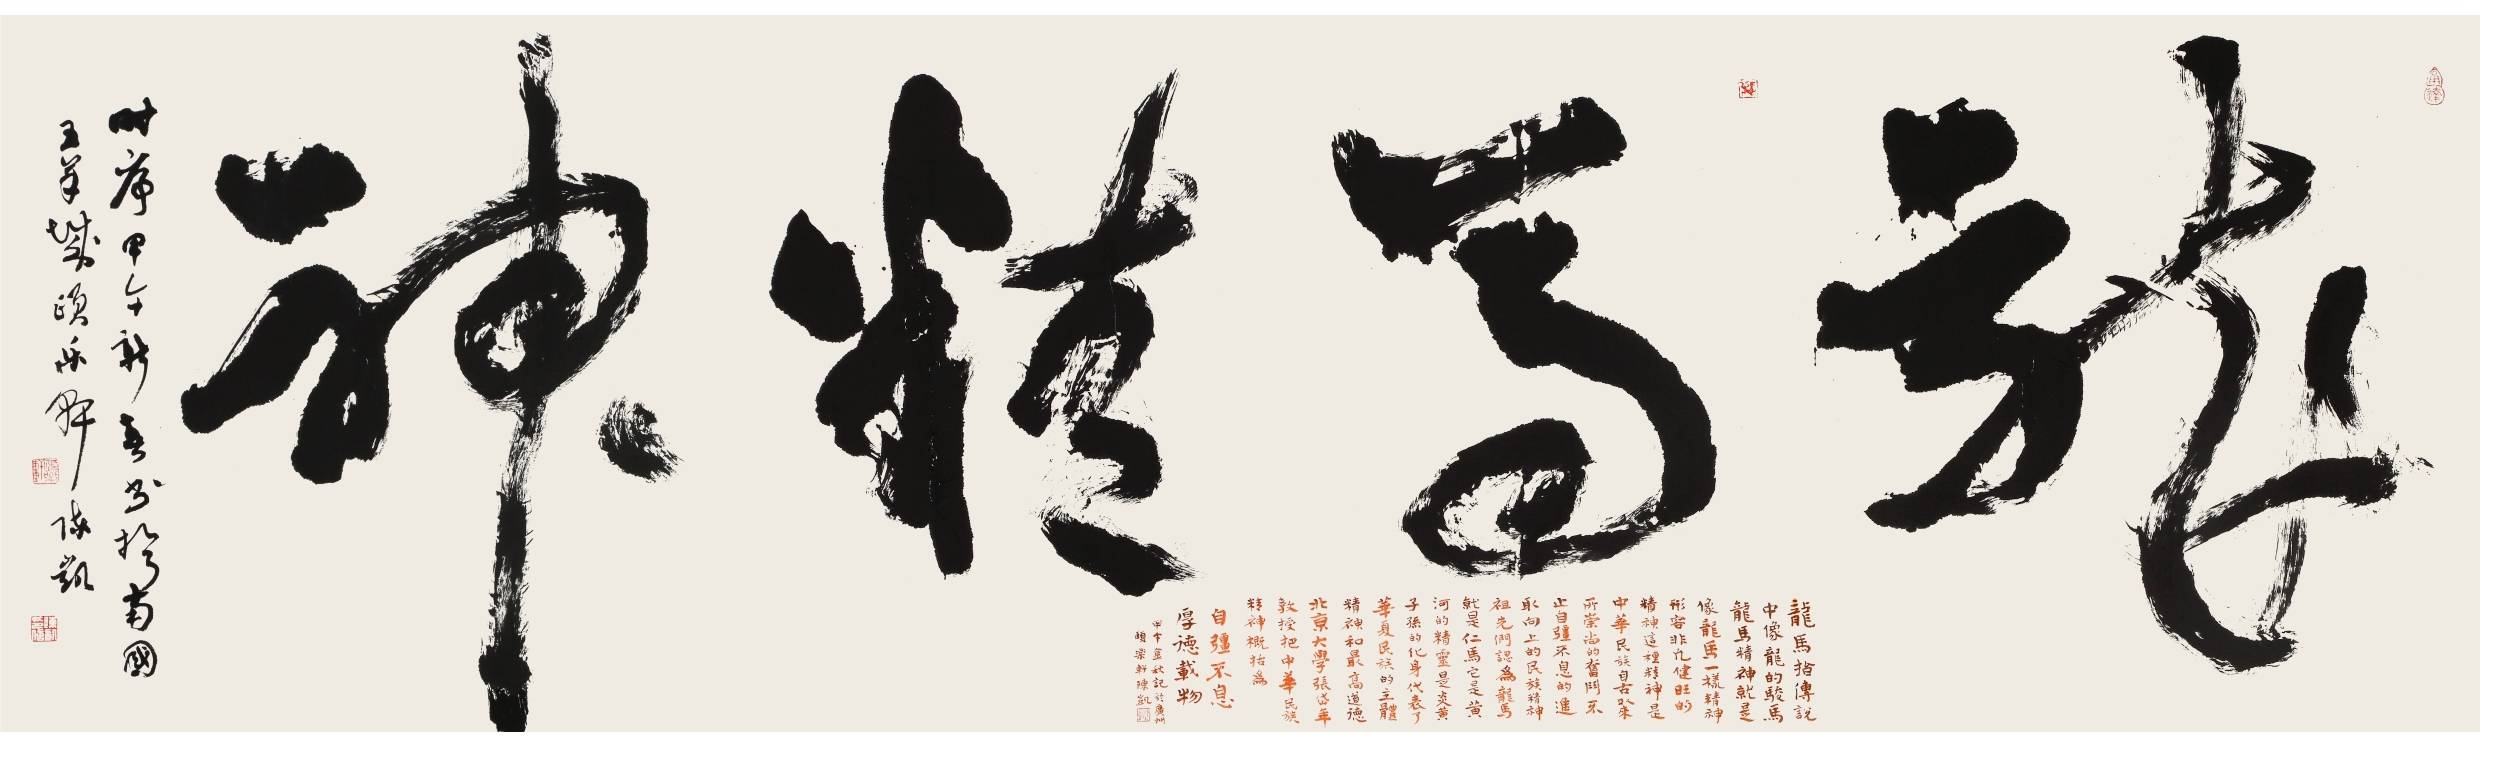 龍馬精神
龍馬指傳說
中像龍的駿馬
龍馬精神就是
像龍馬一樣精神
形容非凡健旺的
精神這種精神是
中華民族自古以來
所崇尚的奮鬥不
止自彊不息的進
取向上的民族精神
祖先們認為龍馬
就是仁馬它是黃
河的精靈是炎黃
子孫的化身代表了
華夏民族的主體
精神和最高道德
北京大學張岱年
教授把中華民族
精神概括為
自彊不息
厚德載物
甲午孟秋記於廣州
頤樂軒陳凱
時席甲午新春書於南國
五羊城頤樂軒陳凱